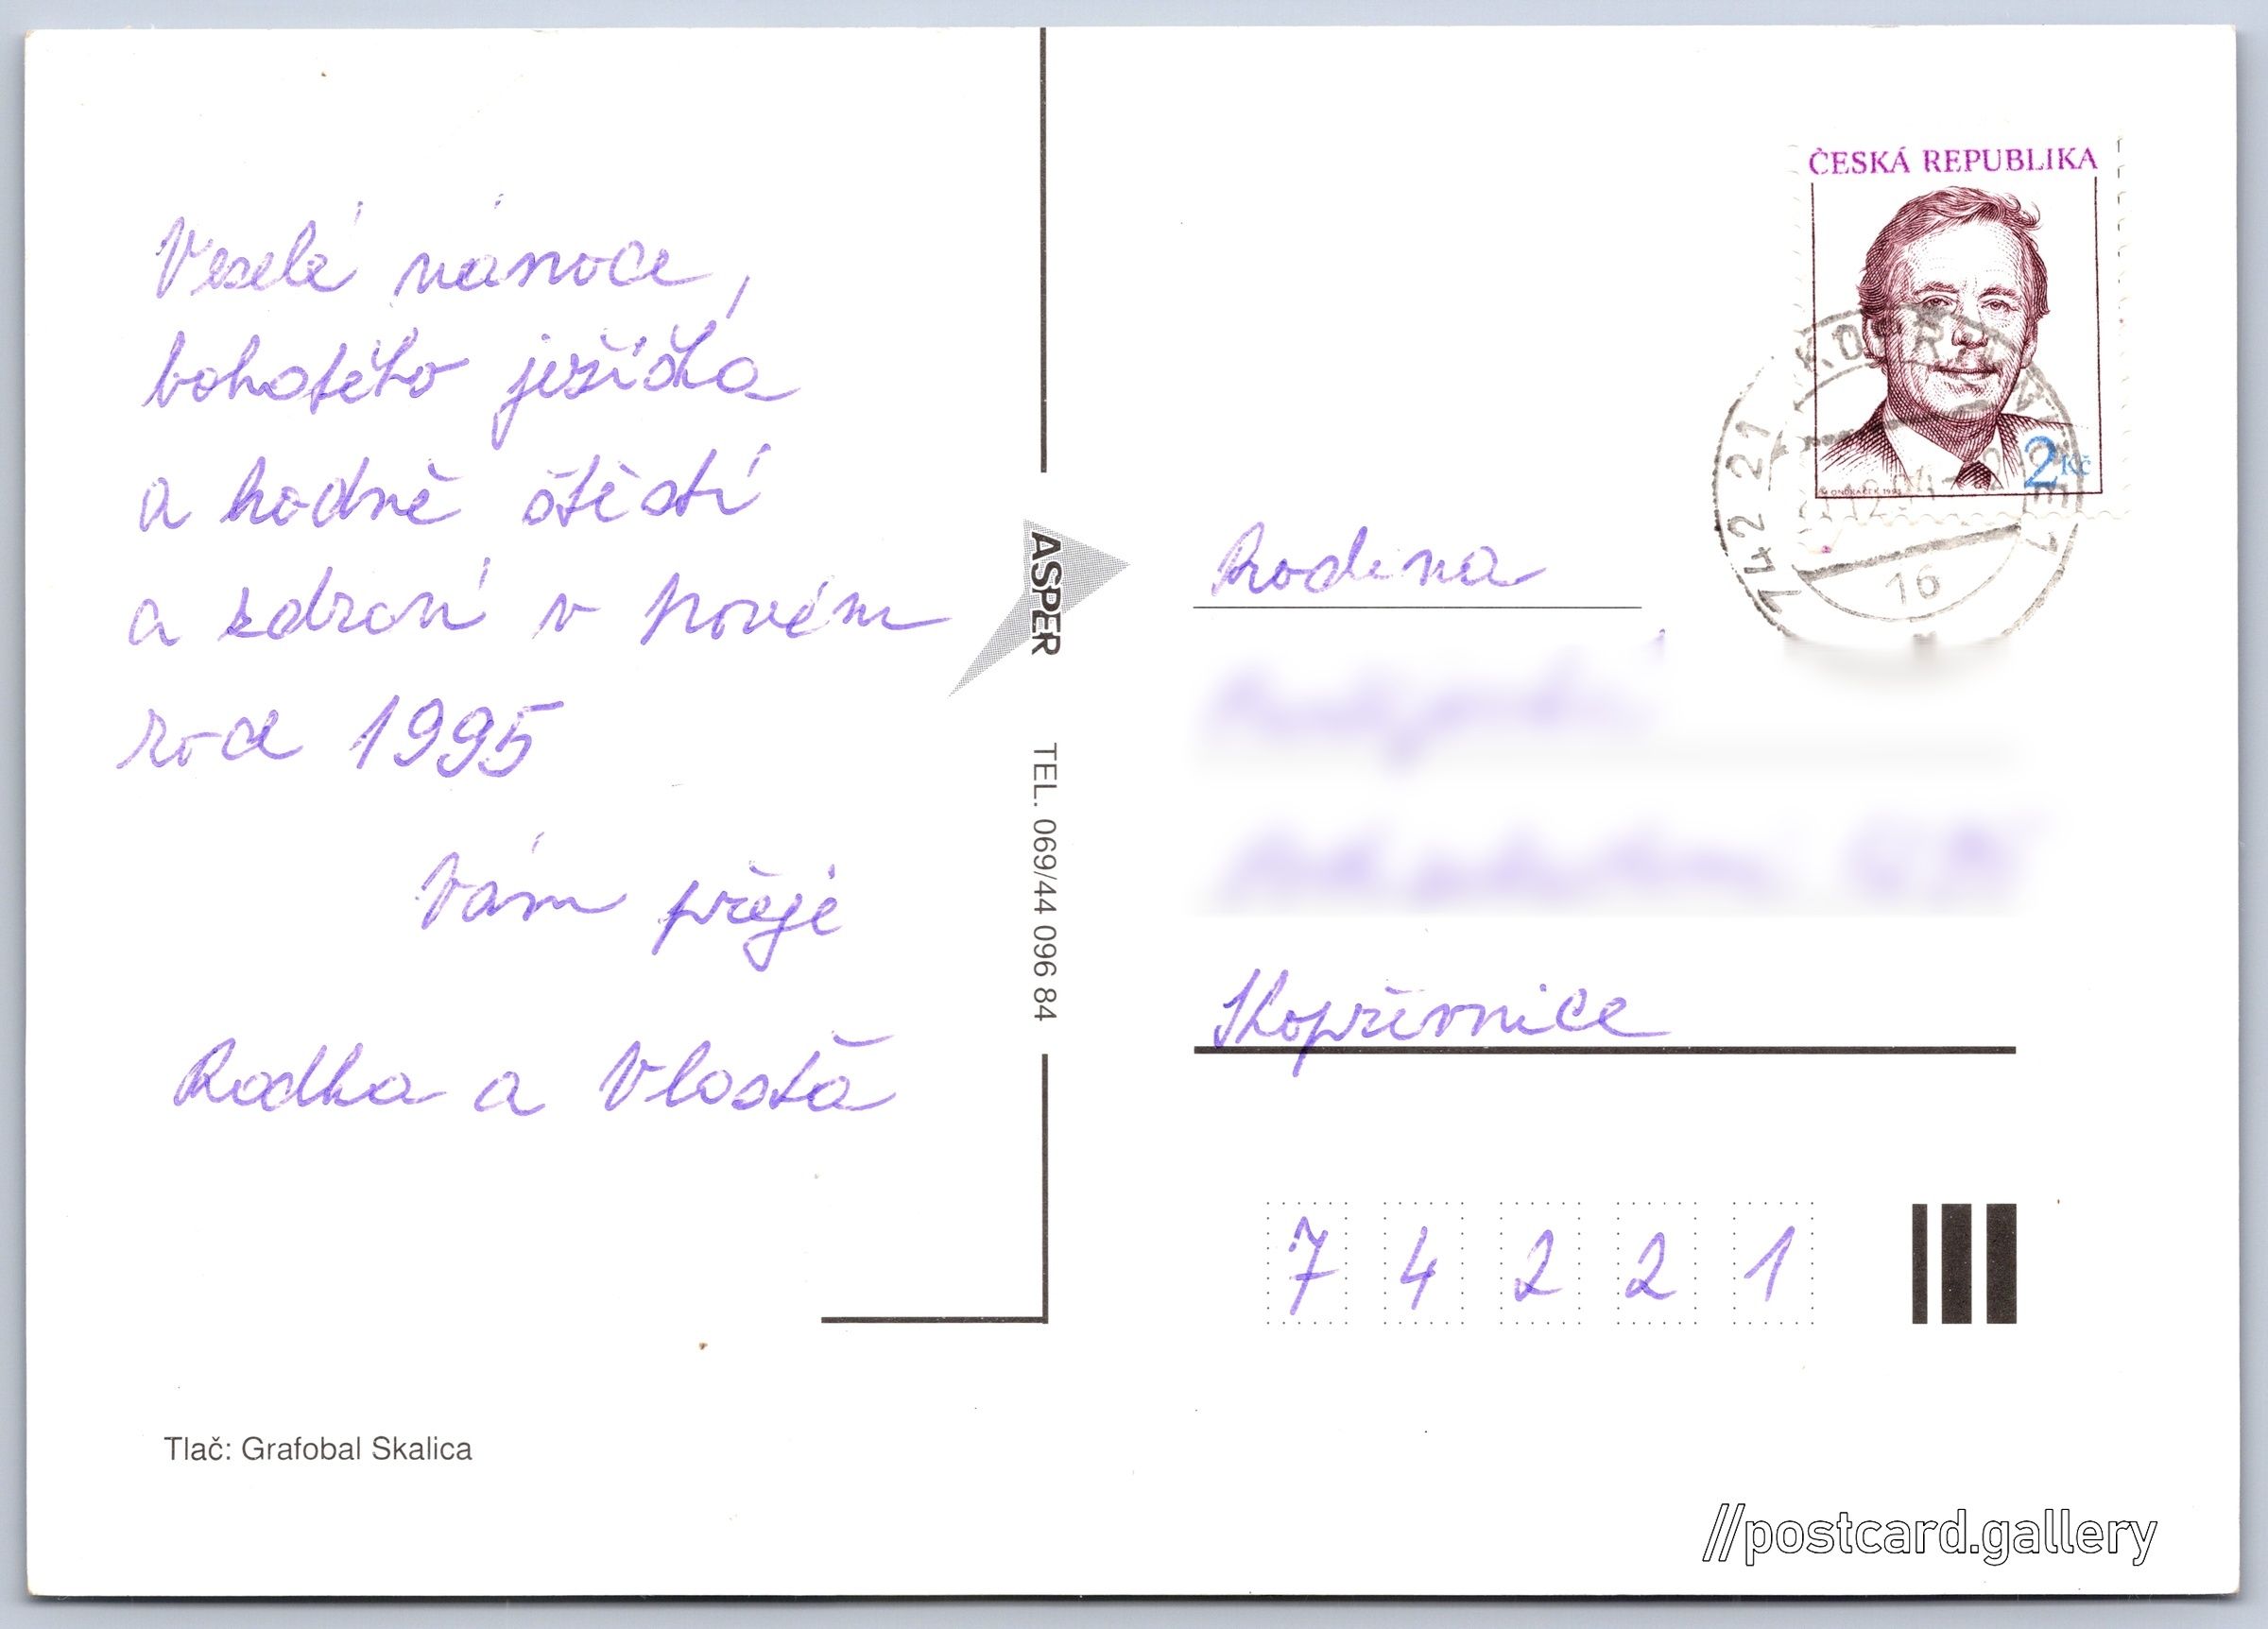 Veselé vánoce,
bohatého ježíška
a hodně štěstí
a zdraví v novém
roce 1995
Vám přeje
Radka a Vlasťa
Tlač: Grafobal Skalica
ASPER
TEL. 069/44 096 84
ČESKÁ REPUBLIKA
2 Kč
742 21
16
Rodina
Kopřivnice
7 4 2 2 1
//postcard.gallery